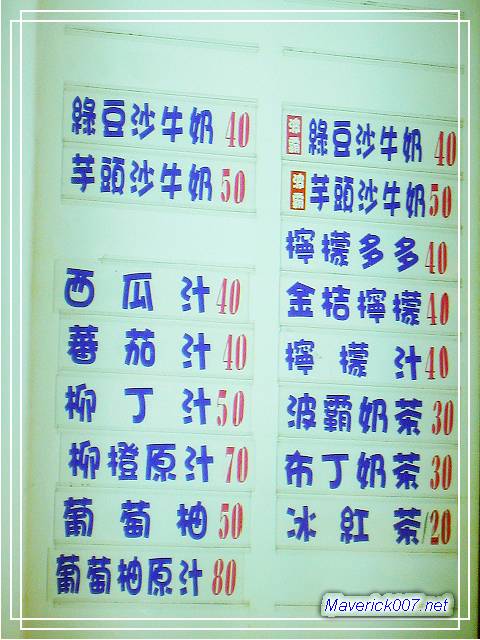 綠豆沙牛奶 40
芋頭沙牛奶 50
西瓜汁 40
蕃茄汁 40
柳丁汁 50
柳橙原汁 70
葡萄柚 50
葡萄柚原汁 80
波霸 綠豆沙牛奶 40
波霸 芋頭沙牛奶 50
檸檬多多 40
金桔檸檬 40
檸檬汁 40
波霸奶茶 30
布丁奶茶 30
冰紅茶/20
Maverick007.net